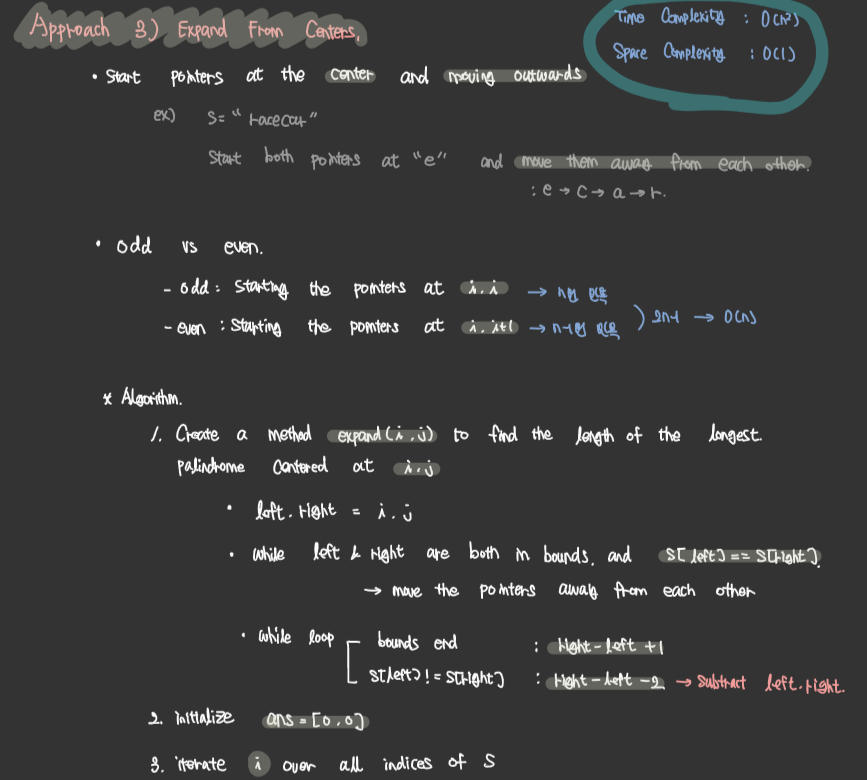 Approach 3) Expand From Centers.
Time Complexity : O(n²)
Space Complexity : O(1)
• Start pointers at the center and moving outwards
ex) S= "racecar"
Start both pointers at "e" and move them away from each other.
: e → c → a → r.
• odd vs even.
- odd : Starting the pointers at i, i → n개 
- even : Starting the pointers at i, i+1 → n-1개 
) 2n-1 → O(n)
* Algorithm.
1. Create a method expand(i, j) to find the length of the longest
palindrome centered at i, j
• left, right = i, j
• while left & right are both in bounds, and S[left] == S[right],
→ move the pointers away from each other
• while loop
bounds end : right-left +1
S[left] != S[right] : right-left -2 → subtract left, right.
2. initialize ans = [0, 0]
3. iterate i over all indices of S